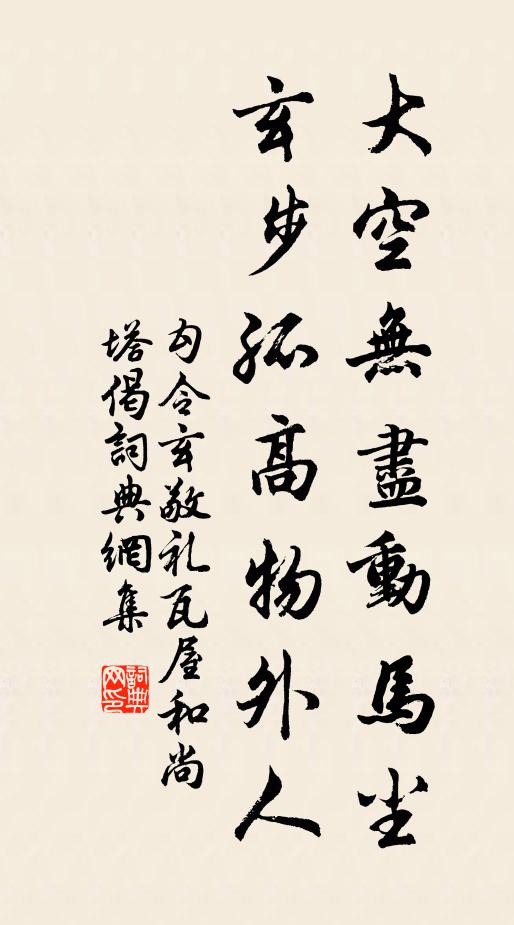 大空無盡動馬尘
玄步孤高物外人
勾令玄敬礼瓦屋和尚
塔偈詞典網集
詞典網印